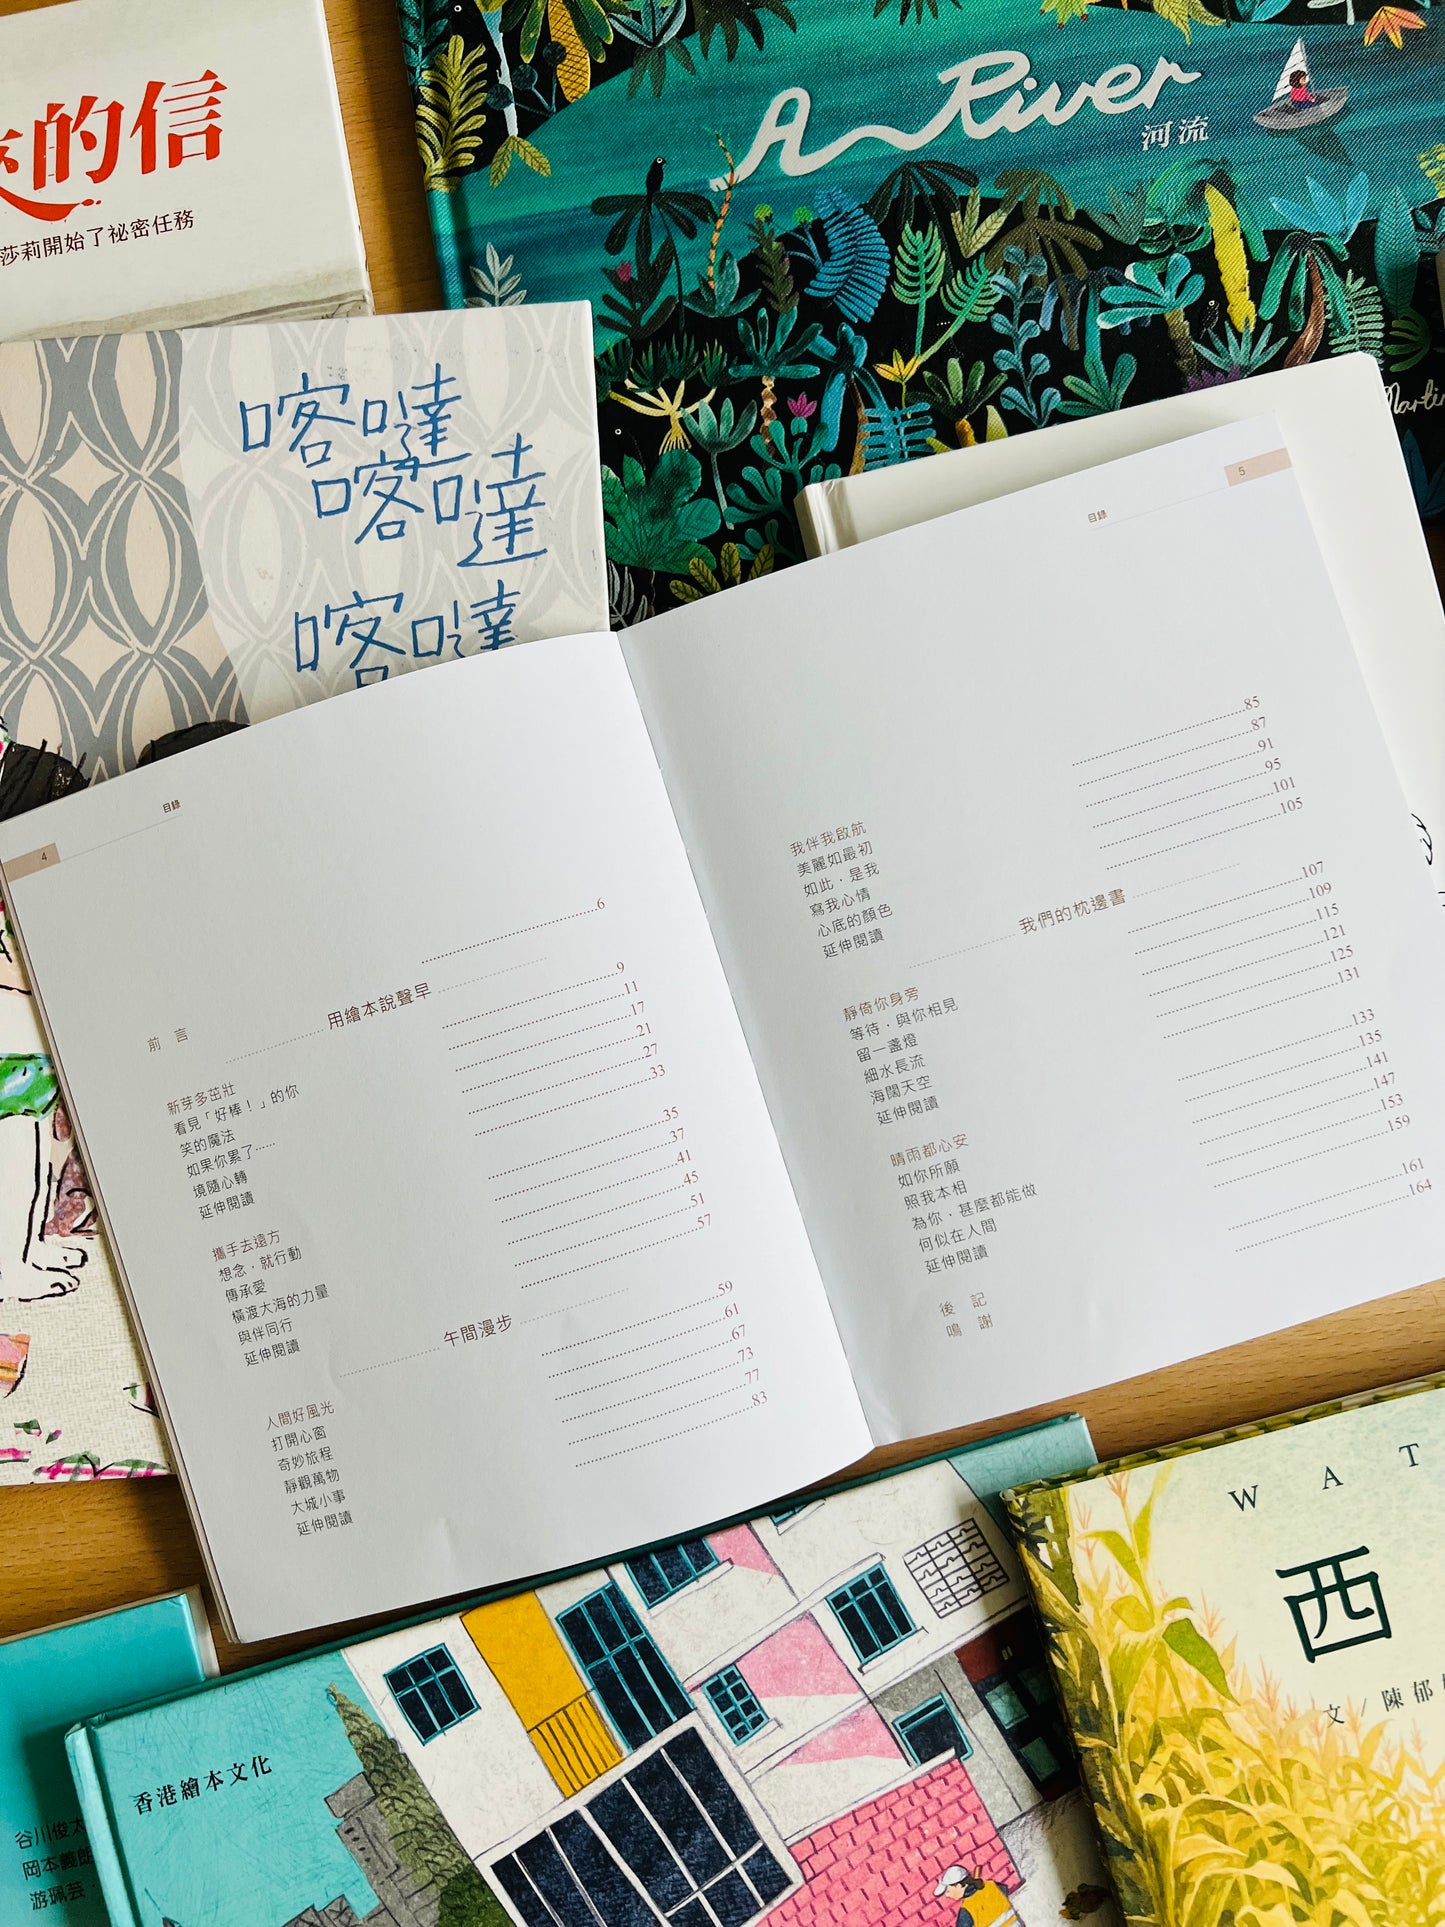 的信
莎莉開始了祕密任務
A River
河流
Martin
喀噠
喀噠
喀噠
4
目錄
前 言 6
用繪本說聲早
新芽多茁壯 9
看見「好棒！」的你 11
笑的魔法 17
如果你累了…… 21
境隨心轉 27
延伸閱讀 33
攜手去遠方 35
想念．就行動 37
傳承愛 41
橫渡大海的力量 45
與伴同行 51
延伸閱讀 57
午間漫步
人間好風光 59
打開心窗 61
奇妙旅程 67
靜觀萬物 73
大城小事 77
延伸閱讀 83
目錄
5
我伴我啟航 85
美麗如最初 87
如此．是我 91
寫我心情 95
心底的顏色 101
延伸閱讀 105
我們的枕邊書
靜倚你身旁 107
等待．與你相見 109
留一盞燈 115
細水長流 121
海闊天空 125
延伸閱讀 131
晴雨都心安 133
如你所願 135
照我本相 141
為你．甚麼都能做 147
何似在人間 153
延伸閱讀 159
後 記 161
鳴 謝 164
香港繪本文化
谷川俊太
岡本義朗
游珮芸
W A T
西
文／陳郁